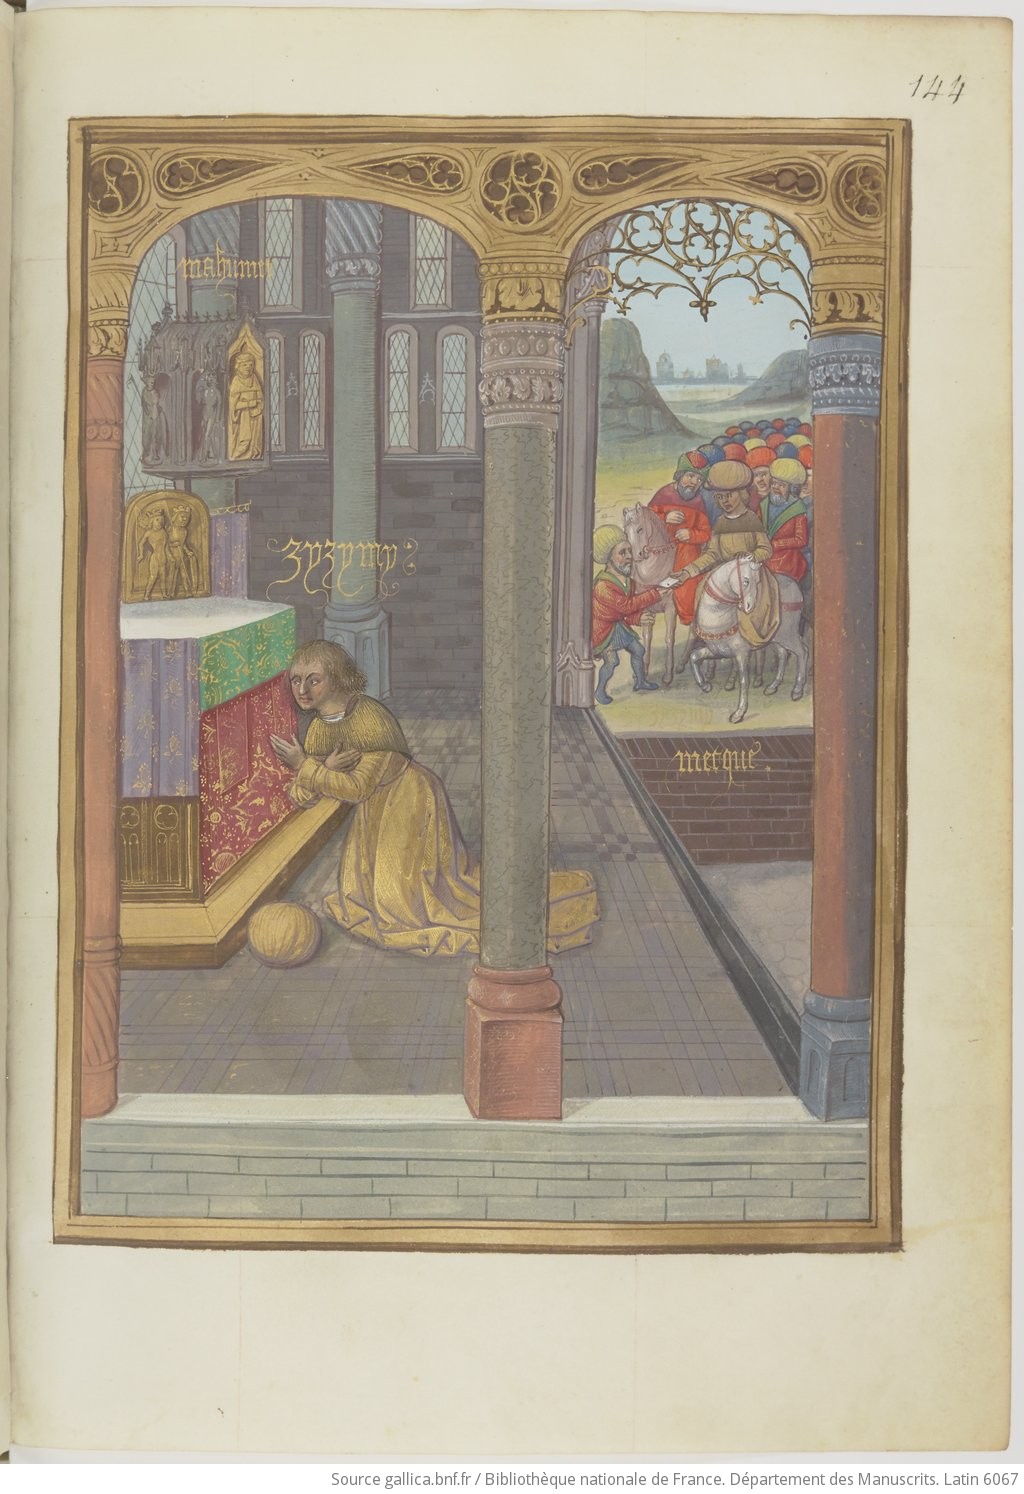 144
mahumet
zyzymy
mecque.
Source gallica.bnf.fr / Bibliothèque nationale de France. Département des Manuscrits. Latin 6067